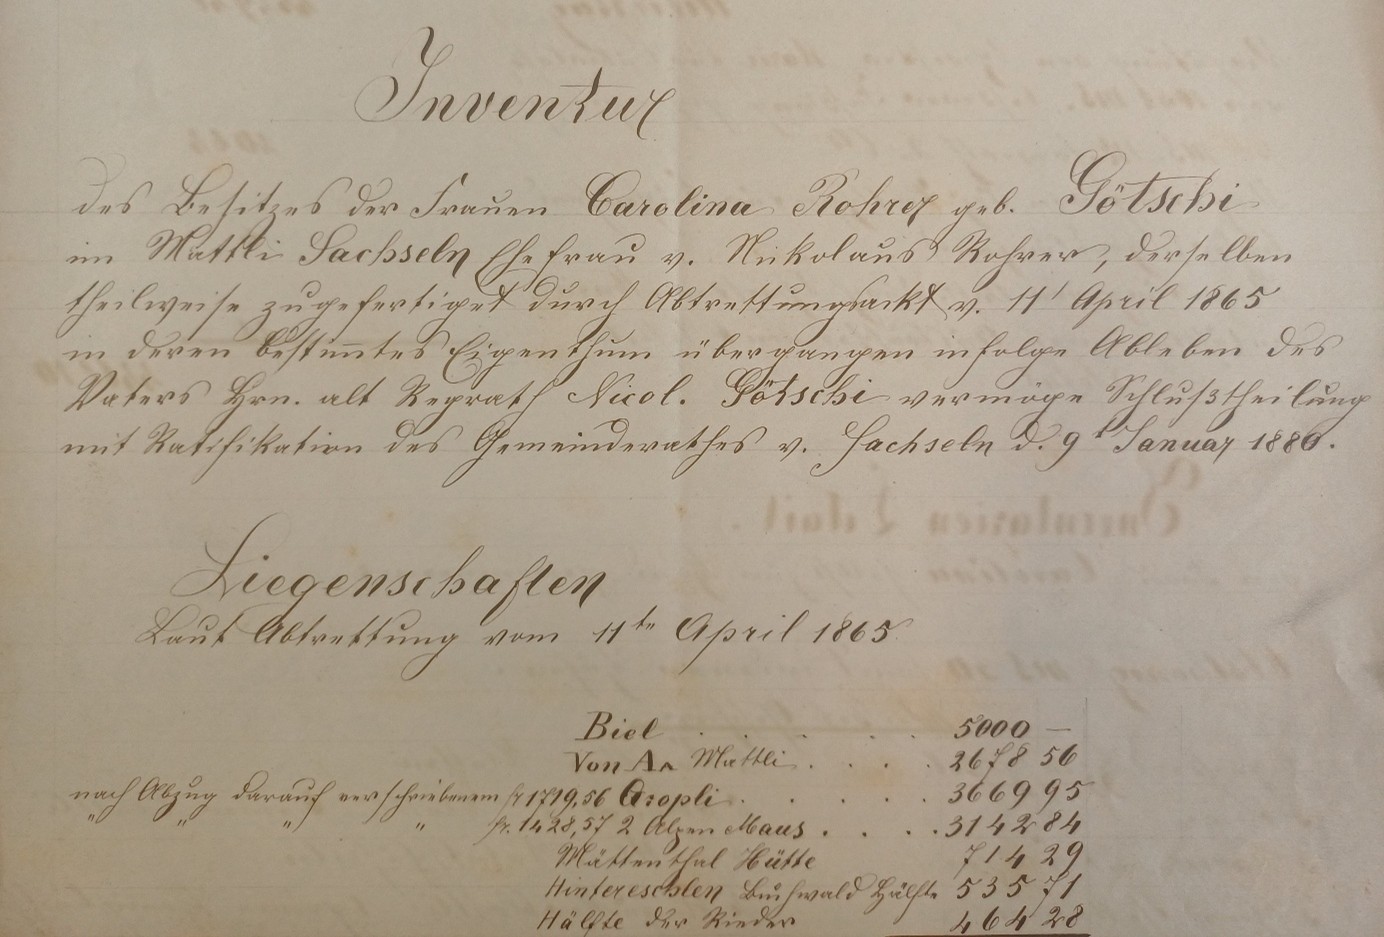 Inventur
des Besitzes der Frauen Carolina Rohrer geb. Götschi
im Mattli Sachseln Ehefrau v. Nikolaus Rohrer, derselben
theilweise zugefertiget durch Abtrettungsackt v. 11' April 1865
in deren bestimtes Eigenthum übergangen infolge Ableben des
Vaters Hrn. alt Regrath Nicol. Götschi vermöge Schlußtheilung
mit Ratifikation des Gemeinderathes v. Sachseln d. 9t Januar 1880.
Liegenschaften
Laut Abtrettung vom 11te April 1865
Biel . . . . . . 5000 —
Von Aa Mattli . . . . 2678 56
nach Abzug darauf verschriebenem fr 1719,56 Gropli . . . . . 3669 95
" " " " fr. 1428,57 2 Alpen Maus . . . . 3142 84
Mättenthal Hütte 714 29
Hintereschlen Buchwald Hälfte 535 71
Hälfte der Rieder 464 28